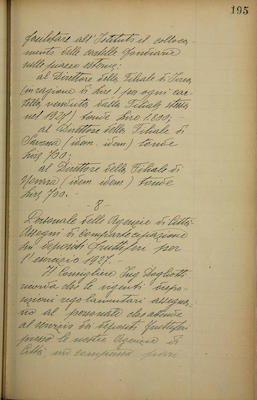 195
facilitare all'Istituto il colloca-
mento delle cartelle fondiarie
sulle piazze estere:
al Direttore della Filiale di
(in ragione di lire 1 per ogni car-
tella venduta dalla Filiale stessa
nel 1927) tonde lire 1.200;
al Direttore della Filiale di
Savona (idem idem) tonde
lire 700;
al Direttore della Filiale di
Novara (idem idem) tonde
lire 700.
- 8 -
Personale delle Agenzie di Città.
Assegni di compartecipazione
sui depositi fruttiferi per
l'esercizio 1927.
Il Consigliere Ing. Pagliotti
ricorda che le vigenti dispo-
sizioni regolamentari assegna-
no al personale che attende
al servizio dei depositi fruttiferi
presso le nostre Agenzie di
Città, un compenso